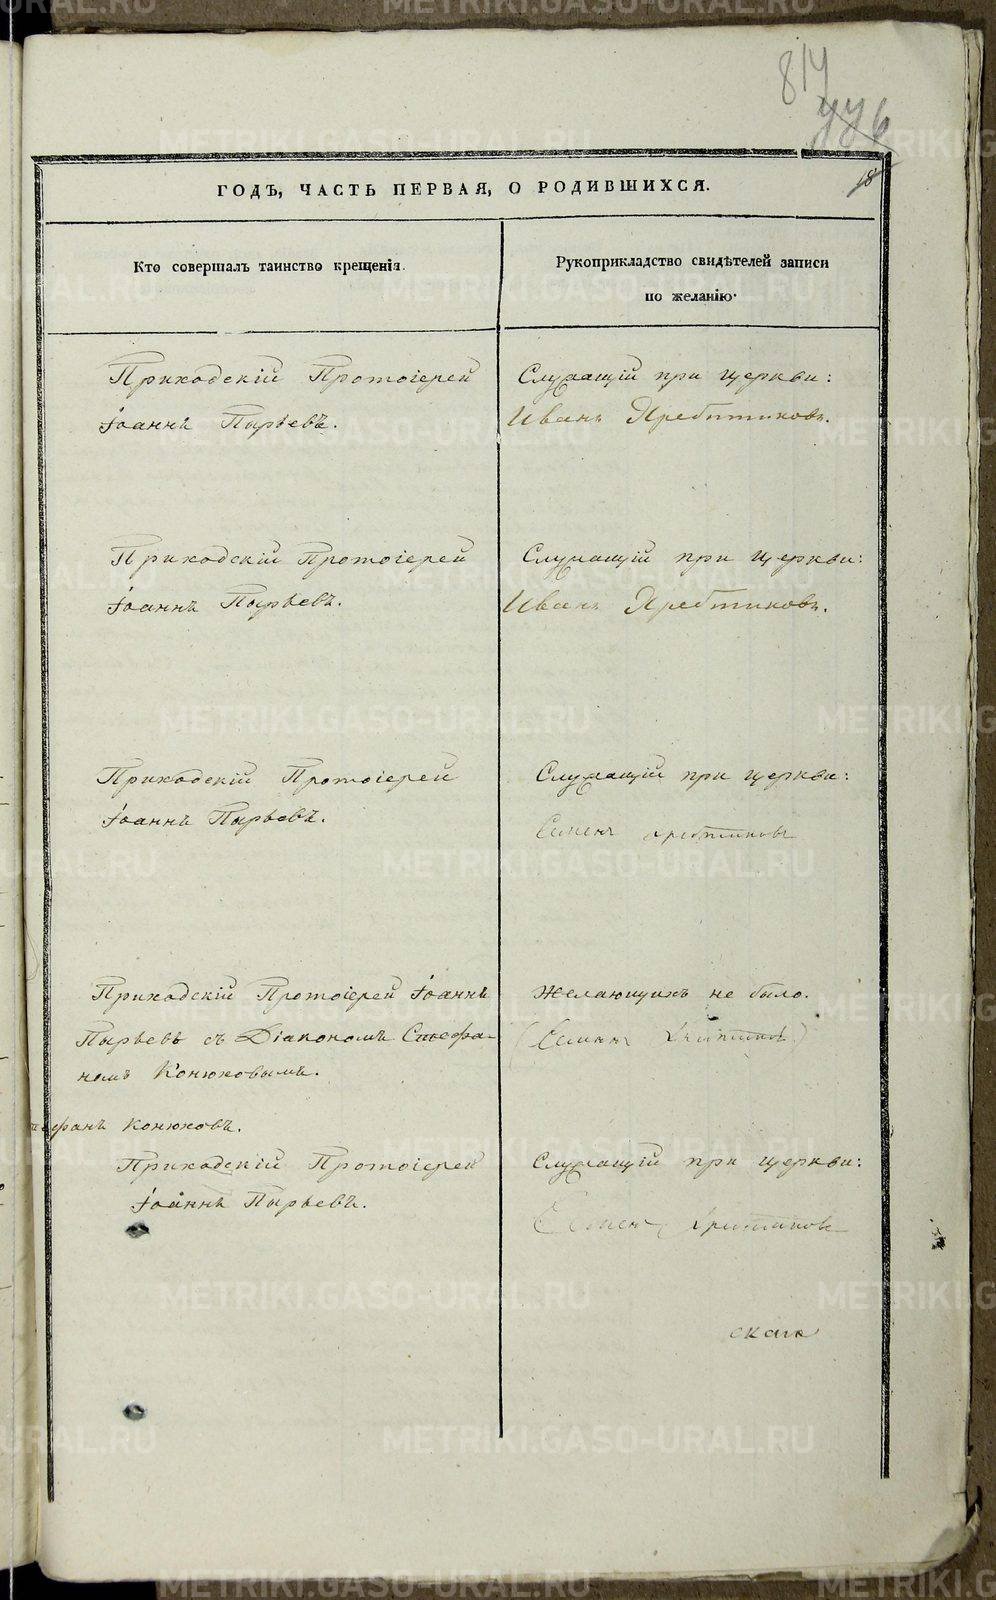 814
776
18
ГОДЪ, ЧАСТЬ ПЕРВАЯ, О РОДИВШИХСЯ.
Кто совершалъ таинство крещенія.
Рукоприкладство свидѣтелей записи
по желанію.
Приходскій Протоіерей
Іоаннъ Пырьевъ.
Служащій при церкви:
Иванъ Хребтиковъ.
Приходскій Протоіерей
Іоаннъ Пырьевъ.
Служащій при церкви:
Иванъ Хребтиковъ.
Приходскій Протоіерей
Іоаннъ Пырьевъ.
Служащій при церкви:
Семенъ Хребтиковъ
Приходскій Протоіерей Іоаннъ
Пырьевъ съ Діакономъ Стефа-
номъ Конюховымъ.
Конюховъ.
Желающихъ не было.
(Семенъ Хребтиковъ)
Приходскій Протоіерей
Іоаннъ Пырьевъ.
Служащій при церкви:
Семенъ Хребтиковъ
скаго
METRIKI.GASO-URAL.RU